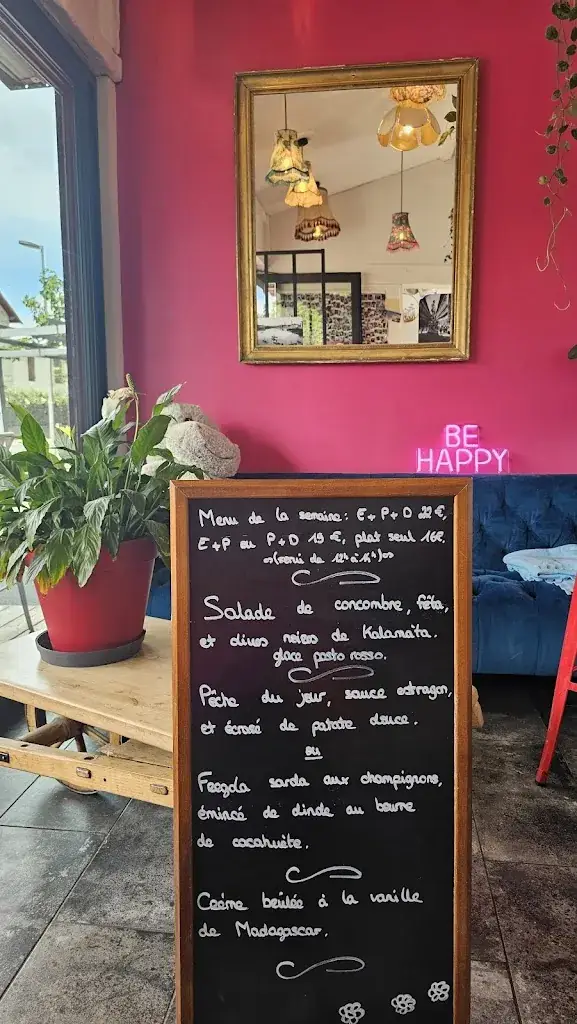 BE
HAPPY
Menu de la semaine : E + P + D 22 €,
E + P ou P + D 19 €, plat seul 16€.
(servi de 12h à 14h)
Salade de concombre, fêta,
et olives noires de Kalamata.
glace pesto rosso.
Pêche du jour, sauce estragon,
et écrasé de patate douce.
ou
Fregola sarda aux champignons,
émincé de dinde au beurre
de cacahuète.
Crème brûlée à la vanille
de Madagascar.